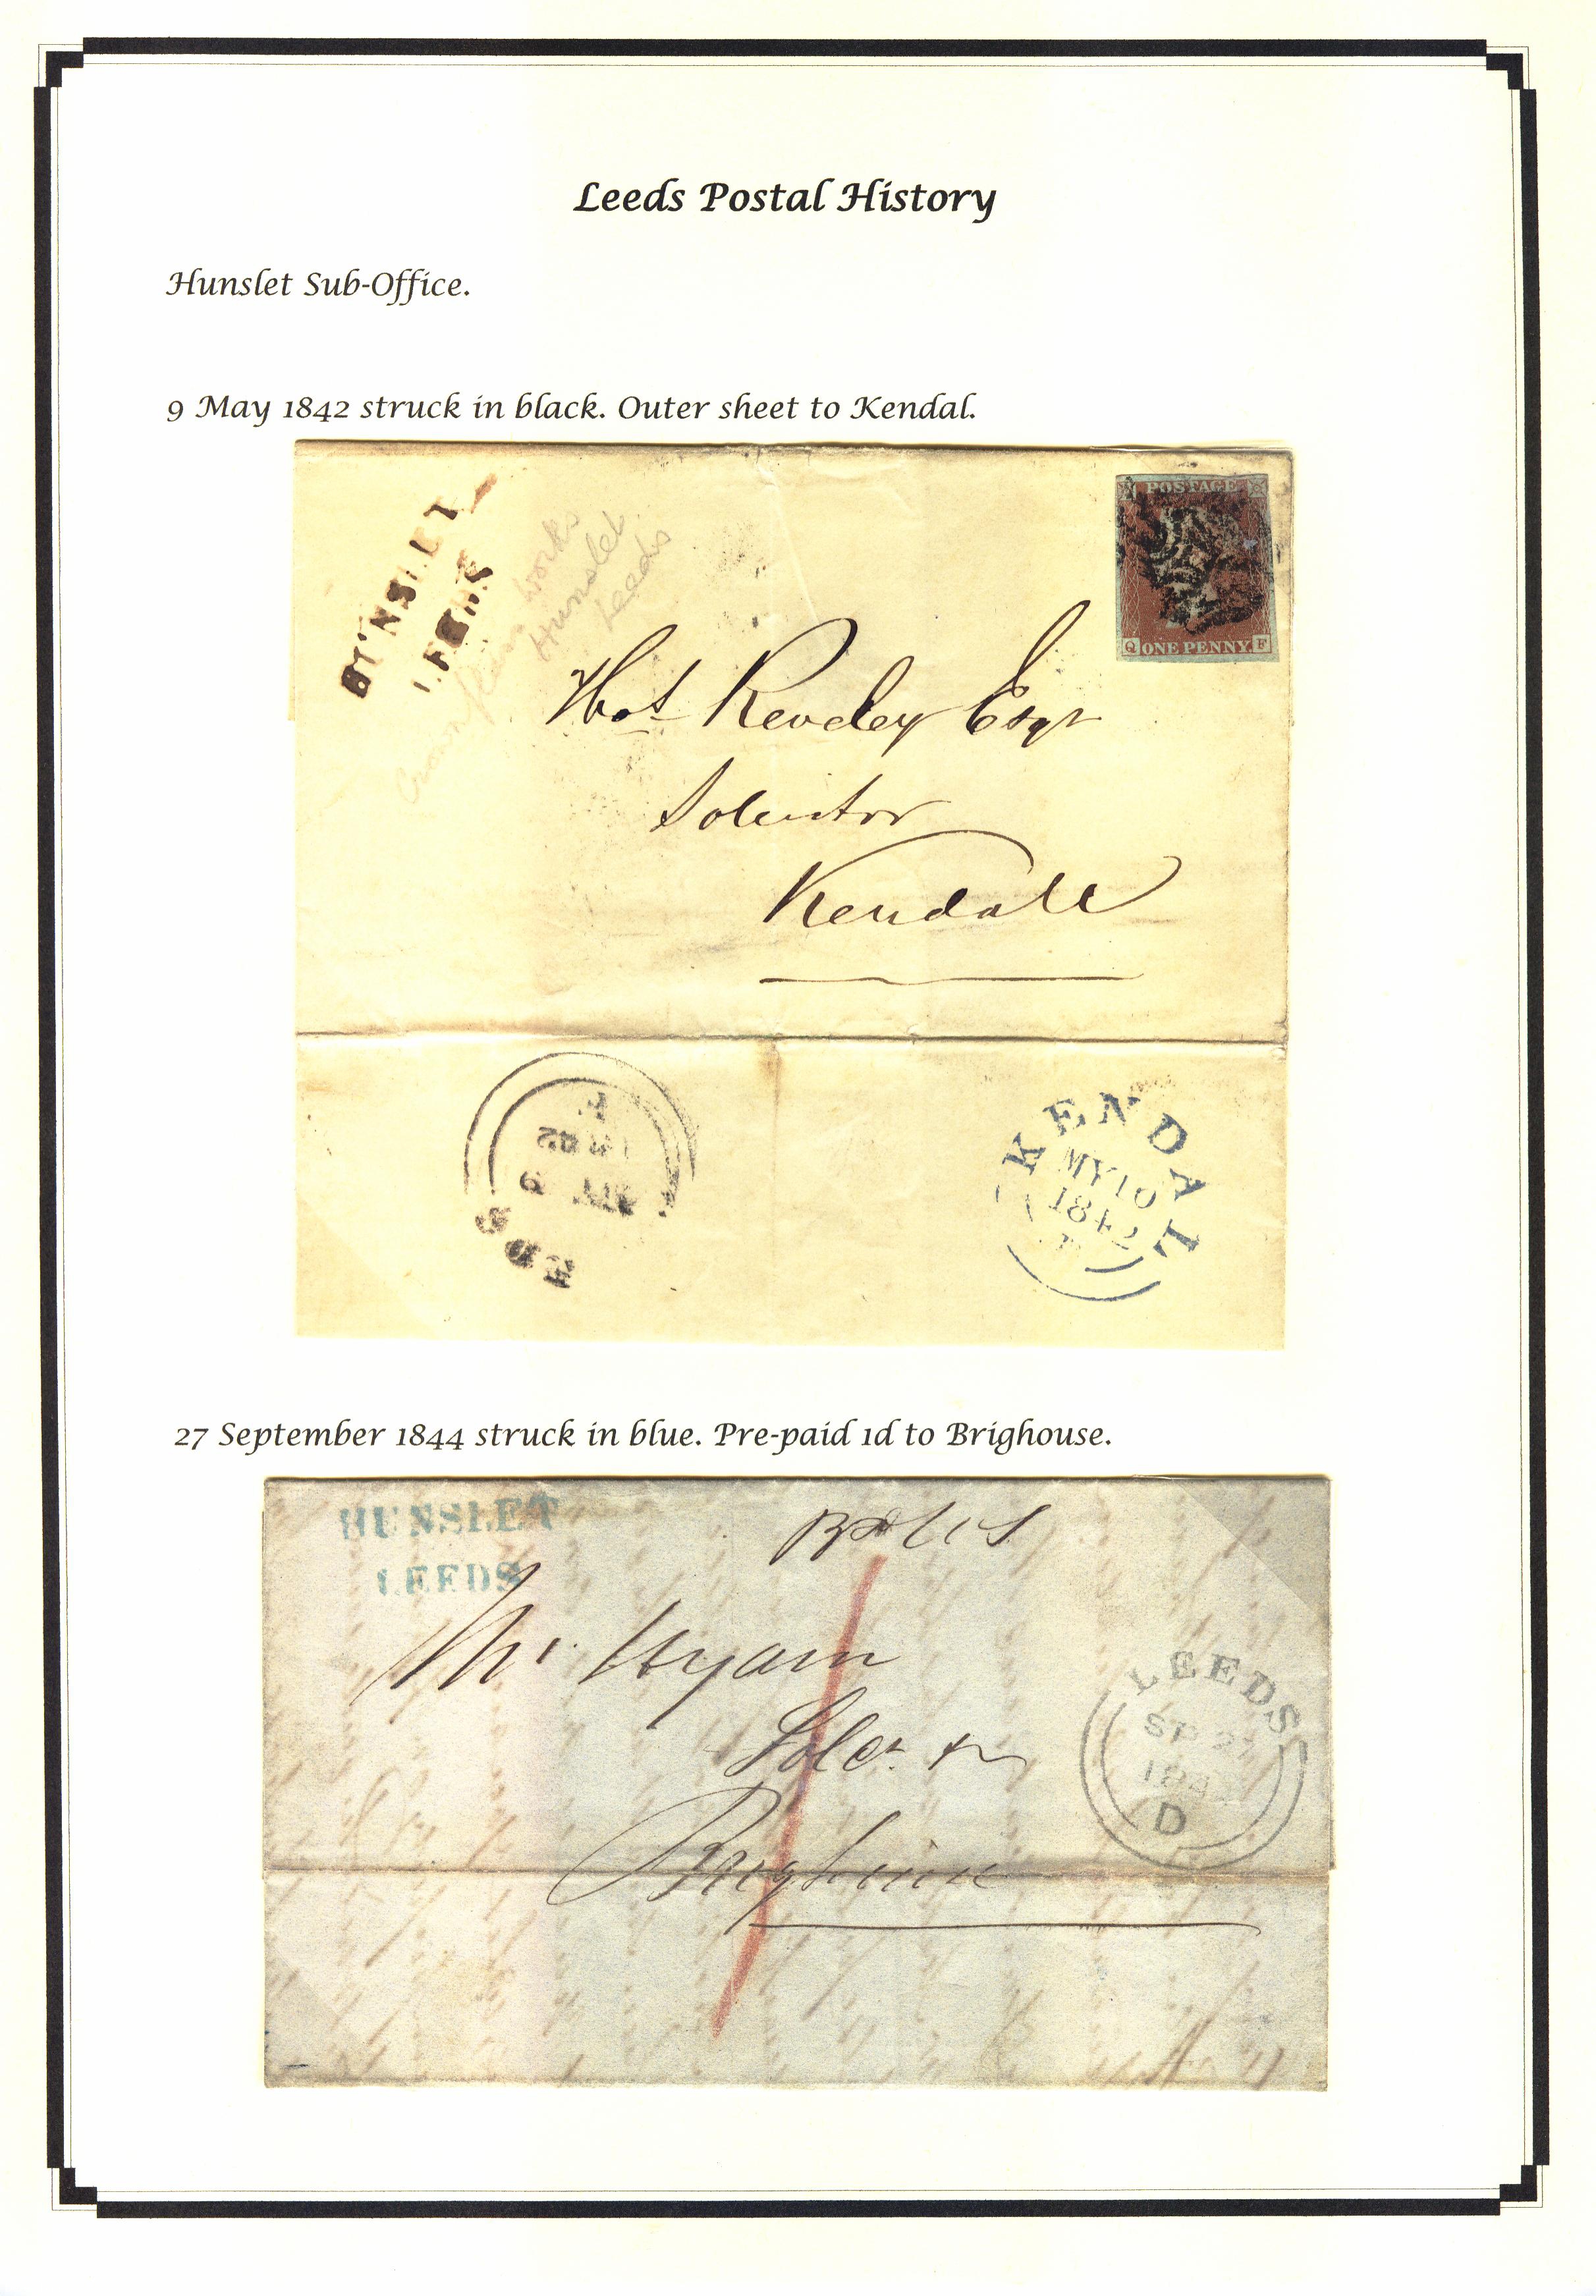 Leeds Postal History
Hunslet Sub-Office.
9 May 1842 struck in black. Outer sheet to Kendal.
HUNSLET
LEEDS
Works
Hunslet
Leeds
POSTAGE
Q ONE PENNY. F
Thos Reveley Esqr
Solicitor
Kendall
F
1842
MY 9
EDS
KENDAL
MY 10
1842
27 September 1844 struck in blue. Pre-paid 1d to Brighouse.
HUNSLET
LEEDS
Mr. Hyam
Solr.
Brighouse
LEEDS
SP 27
184
D